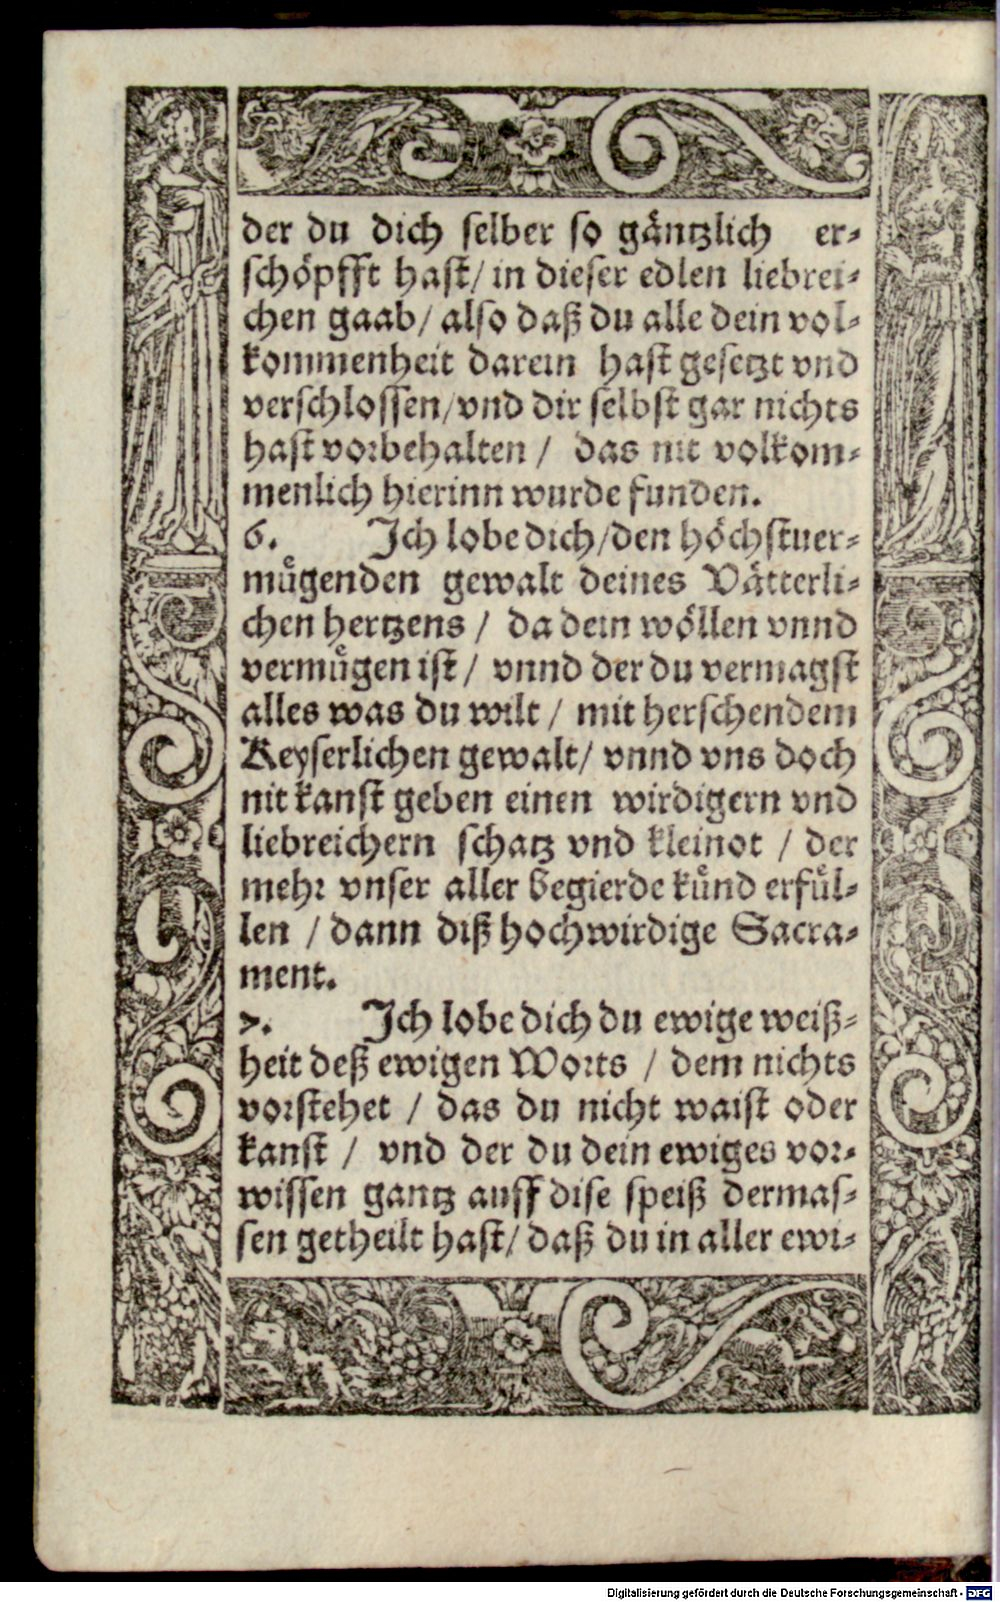 der du dich selber so gäntzlich er-
schöpfft hast/ in dieser edlen liebrei-
chen gaab/ also daß du alle dein vol-
kommenheit darein hast gesetzt vnd
verschlossen/ vnd dir selbst gar nichts
hast vorbehalten / das nit volkom-
menlich hierinn wurde funden.
6. Ich lobe dich/ den höchstuer-
mügenden gewalt deines Vätterli-
chen hertzens / da dein wöllen vnnd
vermügen ist / vnnd der du vermagst
alles was du wilt / mit herschendem
Keyserlichen gewalt/ vnnd vns doch
nit kanst geben einen wirdigern vnd
liebreichern schatz vnd kleinot / der
mehr vnser aller begierde künd erfül-
len / dann diß hochwirdige Sacra-
ment.
7. Ich lobe dich du ewige weiß-
heit deß ewigen Worts / dem nichts
vorstehet / das du nicht waist oder
kanst / vnd der du dein ewiges vor-
wissen gantz auff dise speiß dermas-
sen getheilt hast/ daß du in aller ewi-
Digitalisierung gefördert durch die Deutsche Forschungsgemeinschaft - DFG